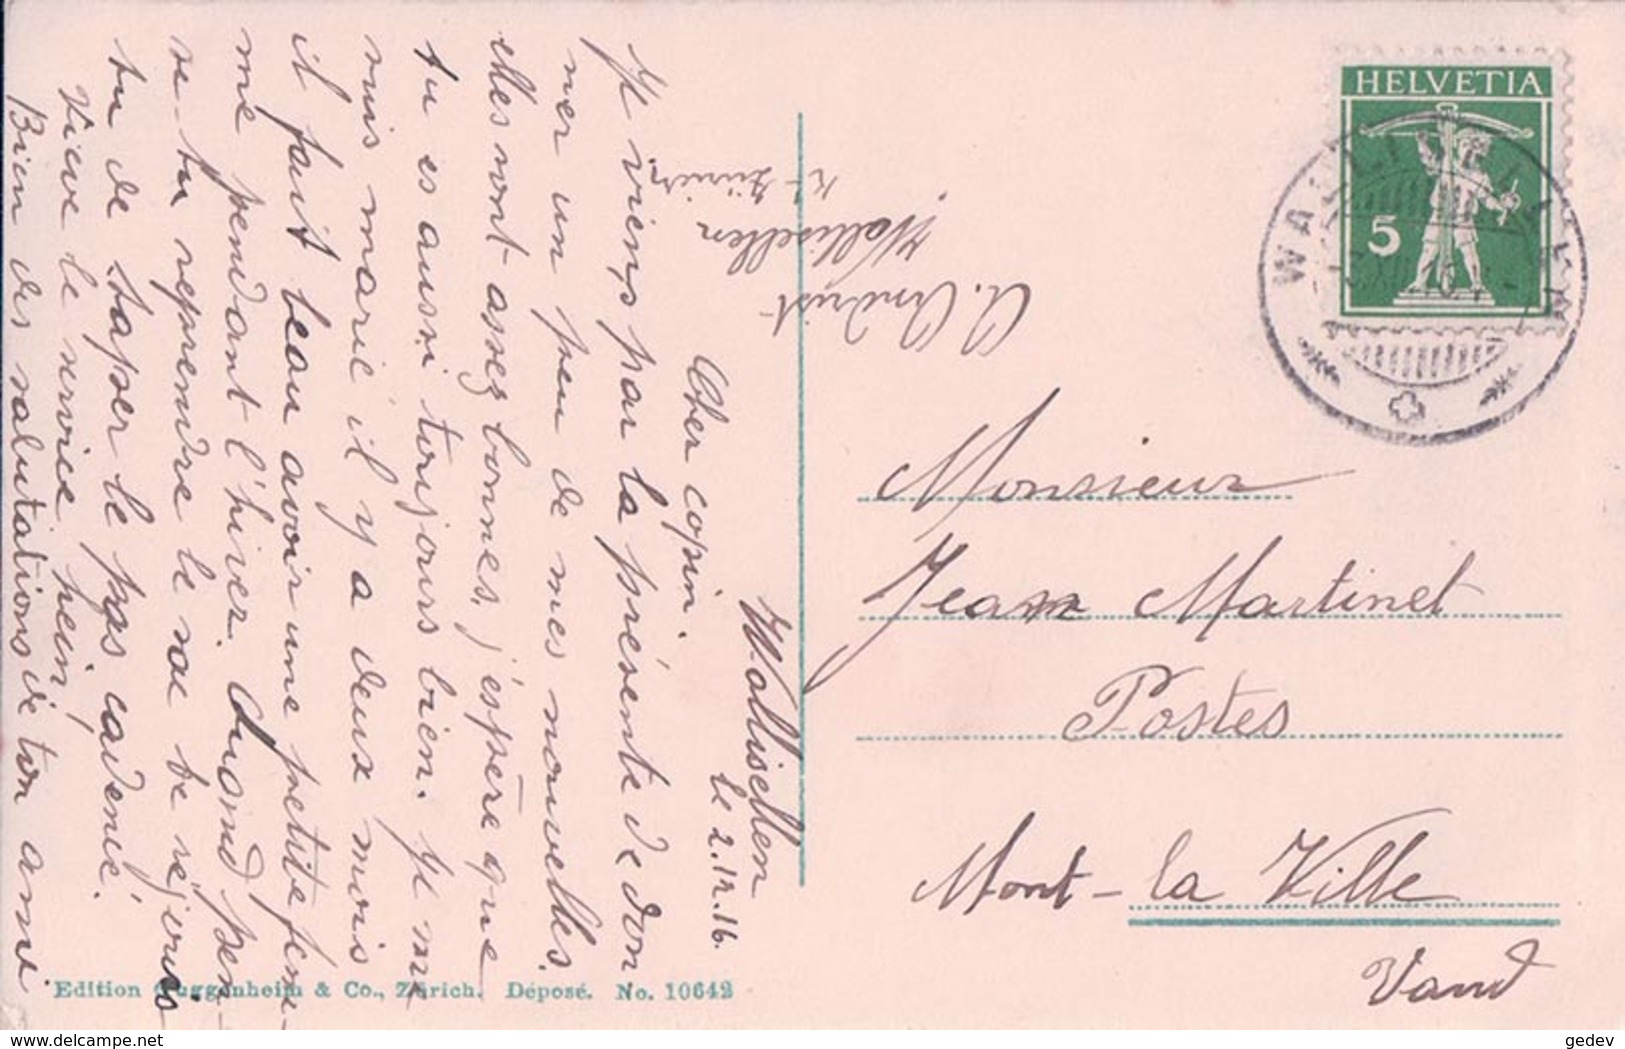 Wallisellen
le 2.12.16.
Cher copin.
Je viens par la présente de don
ner un peu de mes nouvelles.
elles sont assez bonnes, j'espère que
tu es aussi toujours bien. Je me
suis marié il y a deux mois
il fait beau avoir une petite fem-
me pendant l'hiver. Quand pen-
se-tu reprendre le sac
tu de taper le pas cadencé.
Vive le service hein,
Bien des salutations de ton ami
A. Andrist
Wallisellen
Kt Zürich
HELVETIA
5
WALLISELLEN
Monsieur
Jean Martinet
Postes
Mont-la Ville
Vaud
Edition Guggenheim & Co., Zürich. Déposé. No. 10642
delcampe.net
gedev